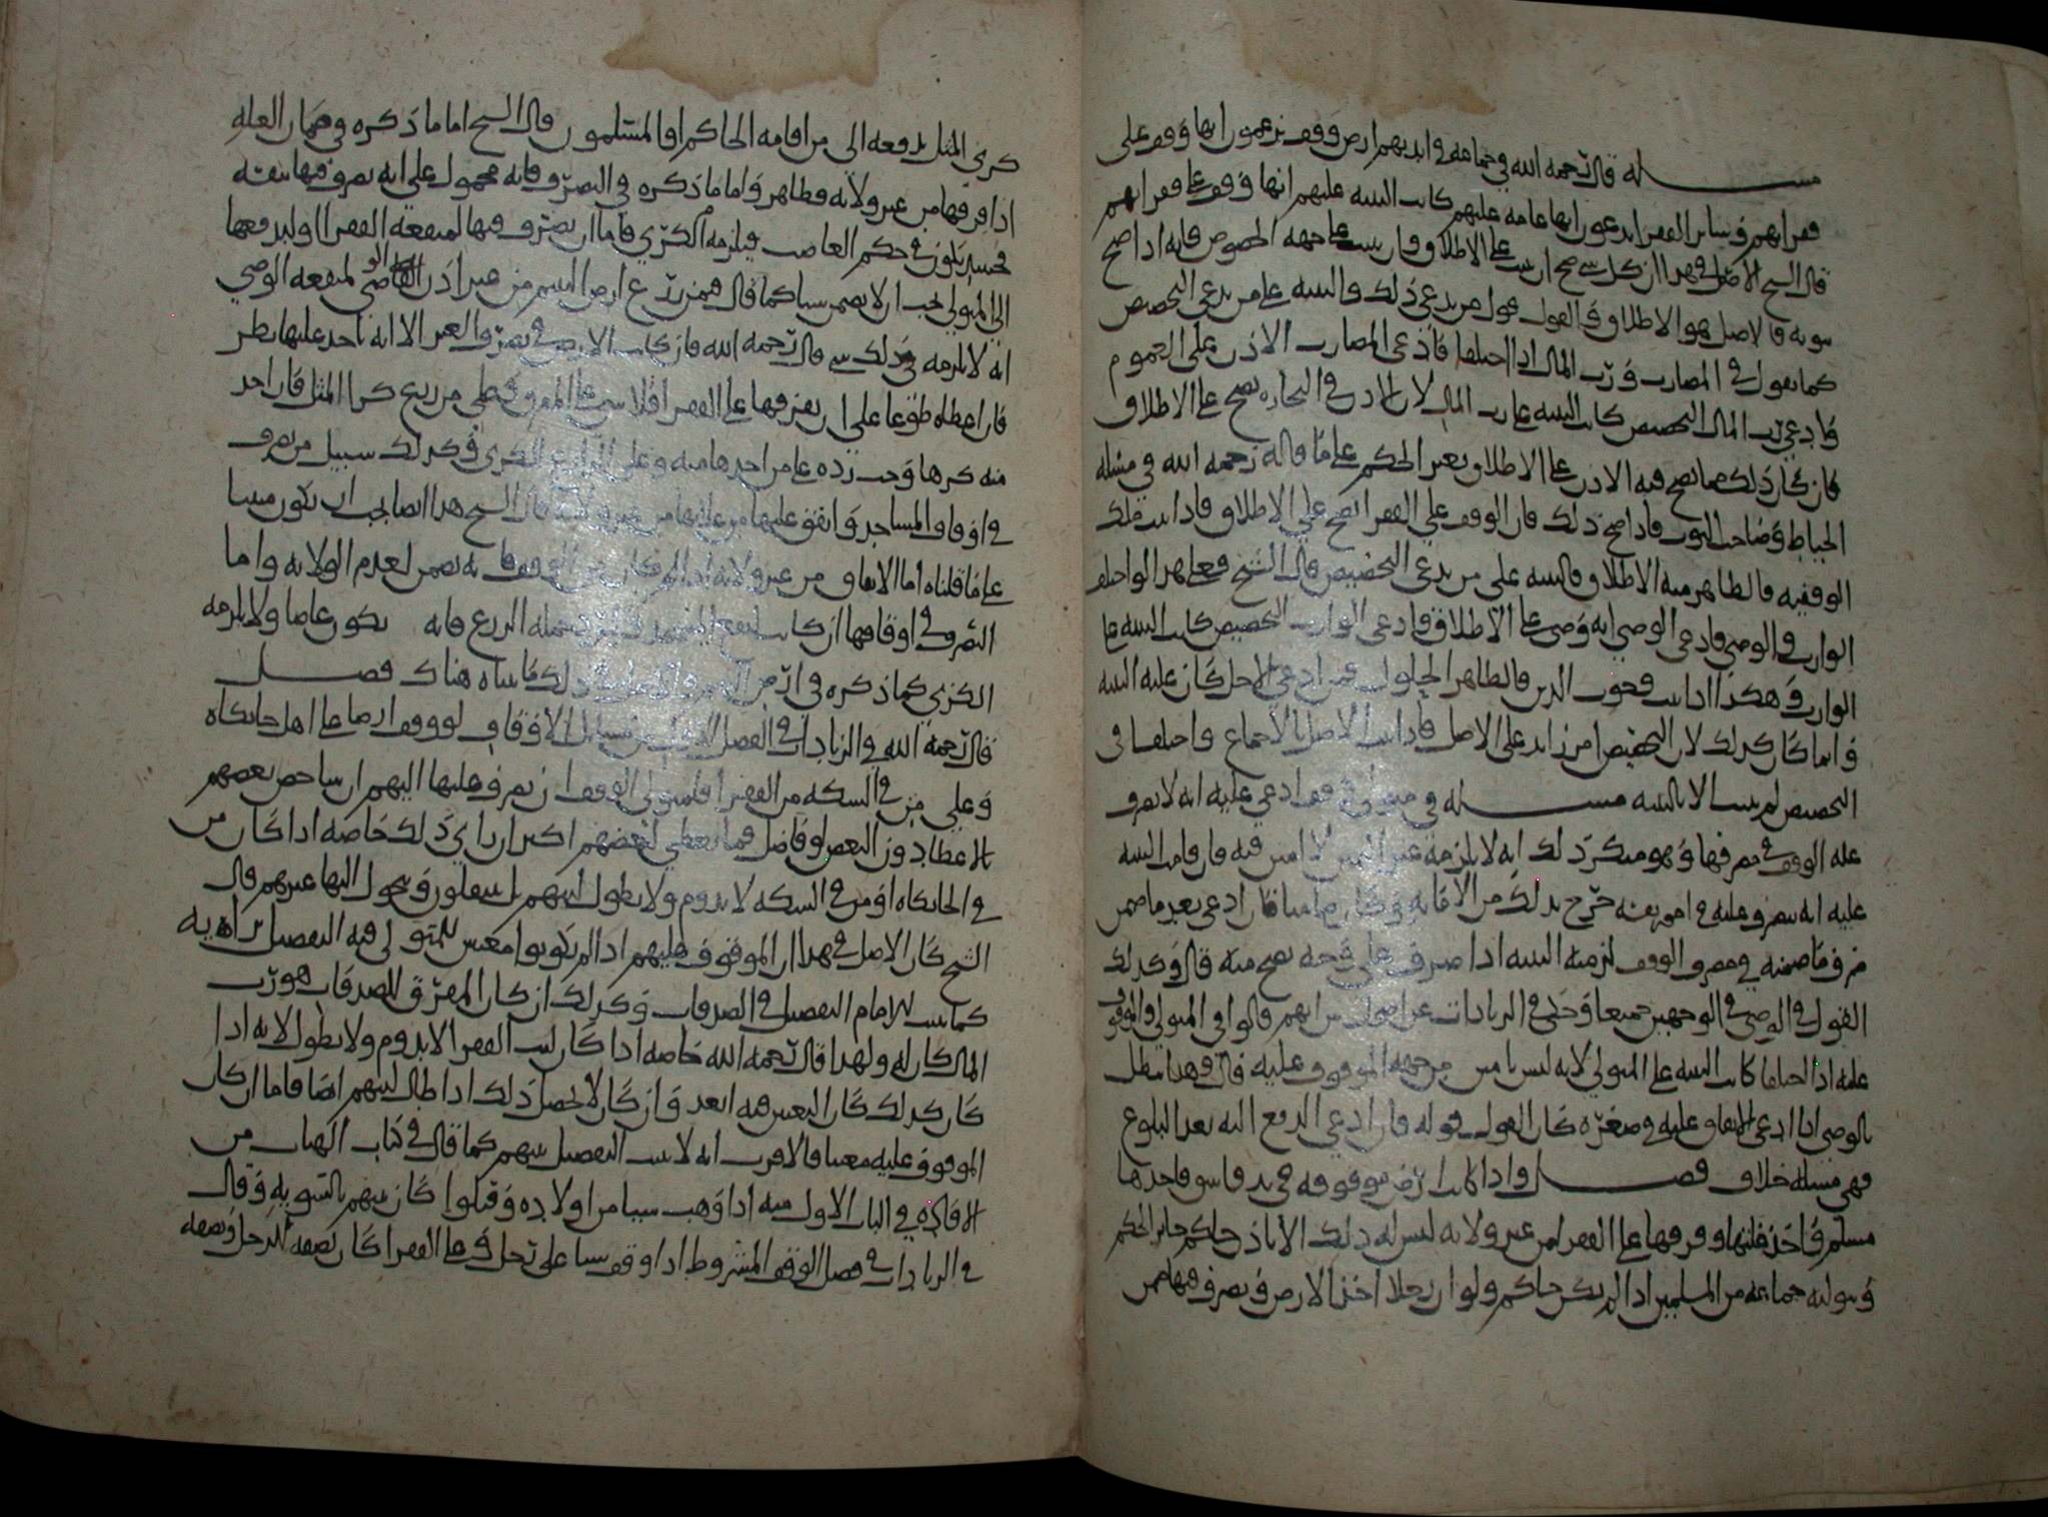 مسـله قال رحمه الله في جماعه في ايديهم ارض وقف يزعمون انها وقف على
فقرايهم وساير الفقرا يدعون انها عامه عليهم كانت البينه عليهم انها وقف على فقرايهم
قال الشيخ الاصل في هذا ان كل شي صح ان يثبت على الاطلاق وان يثبت على جهه الخصوص فانه اذا صح
ثبوته فالاصل هو الاطلاق والقول قول من يدعي ذلك والبينه على من يدعي التخصيص
كما يقول في المضارب ورب المال اذا اختلفا فادعى المضارب الاذن على العموم
وادعى رب المال التخصيص كانت البينه على رب المال لان الاذن في التجاره يصح على الاطلاق
فان كان ذلك مما يصح فيه الاذن على الاطلاق بغير الحكم على ما قاله رحمه الله في مسله
الخياط وصاحب الثوب فاذا صح ذلك فان الوقف على الفقرا يصح على الاطلاق فاذا ثبت تلك
الوقفيه فالظاهر منه الاطلاق والبينه على من يدعي التخصيص قال الشيخ فعلى هذا لو اختلف
الوارث والوصي فادعى الوصي انه وصي على الاطلاق وادعى الوارث التخصيص كانت البينه على
الوارث وهكذا اذا ثبت وجوب الدين فالظاهر الحلول فمن ادعى الاجل كان عليه البينه
وانما كان كذلك لان التخصيص امر زايد على الاصل فاذا ثبت الاصل بالاجماع واختلفا في
التخصيص لم يثبت الا بالبينه مسـله في متولي وقف ادعي عليه انه لا يصرف
غله الوقف في مصرفها وهو منكر ذلك انه لا يلزمه غير اليمين لانه امين فيه فان قامت البينه
عليه انه يصرف غلته في امور نفسه خرج بذلك من الامانه وكان ضامنا فان ادعى بعد ما ضمن
صرف ما ضمنه في مصرف الوقف لزمته البينه اذا صرف على وجه يصح منه قال وكذلك
القول في الوصي في الوجهين جميعا وحكى في الزيادات عن اصحابنا انهم قالوا في المتولي والموقوف
عليه اذا اختلفا كانت البينه على المتولي لانه ليس بامين من جهه الموقوف عليه قال وهذا يبطل
بالوصي اذا ادعى الانفاق عليه في صغره كان القول قوله فان ادعى الدفع اليه بعد البلوغ
فهي مسله خلاف فصـل واذا كانت ارض موقوفه في يد فاسق فاخذها
مسلم واخذ غلتها وفرقها على الفقرا من غير ولايه ليس له ذلك الا باذن حاكم جايز الحكم
وتوليه جماعه من المسلمين اذا لم يكن حاكم ولو ان رجلا اخذ الارض وتصرف فيها ضمن
كرى المثل يدفعه الى من اقامه الحاكم او المسلمون قال الشيخ اما ما ذكره في ضمان الغله
اذا فرقها من غير ولايه فظاهر واما ما ذكره في التصرف فانه محمول على انه تصرف فيها لنفسه
فحينئذ يكون في حكم الغاصب فيلزمه الكرى فاما ان يتصرف فيها لمنفعه الفقرا او ليدفعها
الى المتولي يجب ان لا يضمن شيا كما قال فمن زرع ارض اليتيم من غير اذن القاضي او الوصي لمنفعه
انه لا يلزمه في ذلك شي قال رحمه الله فان كانت الارض في يد متصرف العشر الا انه ياخذ عليها بطر
فان اعطاه طوعا على ان يصرفها على الفقرا فلا شي على المعطي من ربع كرا المثل فان اخذ
منه كرها وجب رده على من اخذها منه وعلى الزارع الكرى وكذلك سبيل من تصرف
في اوقاف المساجد وانفق عليها من غلاتها من غير ولايه قال الشيخ هذا ايضا يجب ان يكون مبنيا
على ما قلناه اما الانفاق من غير ولايه اذا لم يكن من الوقف فانه يضمن لعدم الولايه واما
التصرف في اوقافها ان كانت لنفع المسجد فانه يكون عاصيا ولا يلزمه
الكرى كما ذكره في ارض اليتيم ذلك ما بيناه هناك فصـل
قال رحمه الله في الزيادات في الفصل الاول من مسايل الاوقاف لو وقف ارضا على اهل خانكاه
وعلى من في السكه من الفقرا فلمتولي الوقف ان يصرف غلتها اليهم ان شا خص بعضهم
بالاعطا دون البعض او فاضل فيما يعطي لبعضهم اكثر ان راى ذلك خاصه اذا كان من
في الخانكاه او من في السكه لا يدوم ولا يطول لبثهم بل ينتقلون ويتحول اليها غيرهم قال
الشيخ كان الاصل في هذا ان الموقوف عليهم اذا لم يكونوا معينين للمتولي فيه التفصيل برايه
كما يثبت للامام التفضيل في الصدقات وكذلك ان كان المفرق للصدقات هو رب
المال كان له ولهذا قال رحمه الله خاصه اذا كان لبث الفقرا لا يدوم ولا يطول لانه اذا
كان كذلك كان التعيين فيه ابعد وان كان لا يحصل ذلك اذا طال لبثهم ايضا فاما ان كان
الموقوف عليه معينا فالاقرب انه لا يثبت التفضيل بينهم كما قال في كتاب الهبات من
الافاده في الباب الاول منه اذا وهب شيا من اولاده وقبلوا كان بينهم بالسويه وقال
في الزيادات في فصل الوقف المشروط اذا وقف شيا على رجل وعلى الفقرا كان نصفه للرجل ونصفه